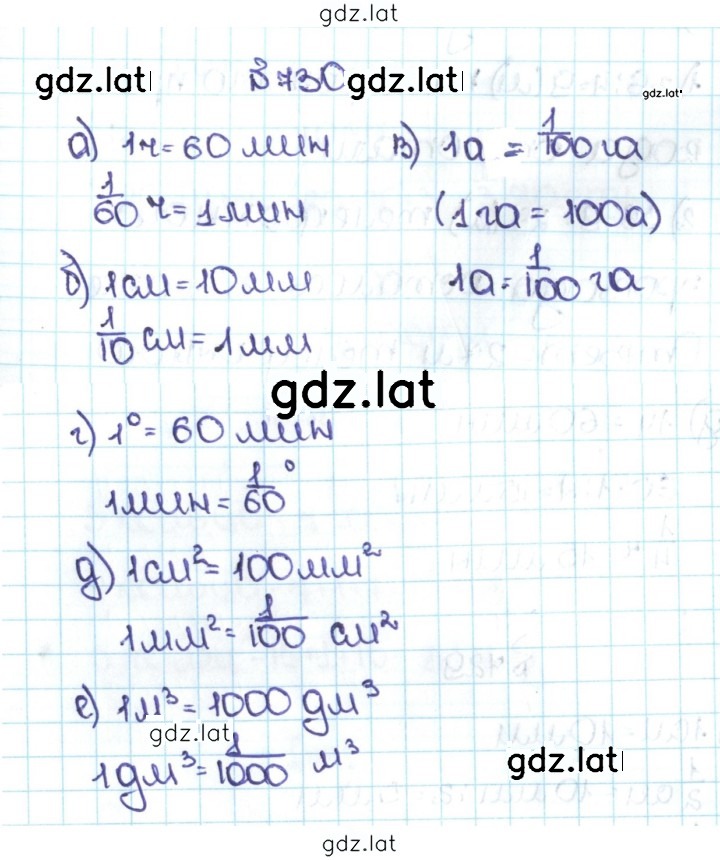 gdz.lat
gdz.lat №730 gdz.lat gdz.lat
а) 1ч = 60 мин в) 1а = 1/100 га
1/60 ч = 1 мин (1 га = 100а)
б) 1см = 10 мм 1а = 1/100 га
1/10 см = 1 мм
gdz.lat
г) 1° = 60 мин
1 мин = 1/60°
д) 1см² = 100 мм²
1 мм² = 1/100 см²
е) 1м³ = 1000 дм³
gdz.lat
1дм³ = 1/1000 м³ gdz.lat
gdz.lat